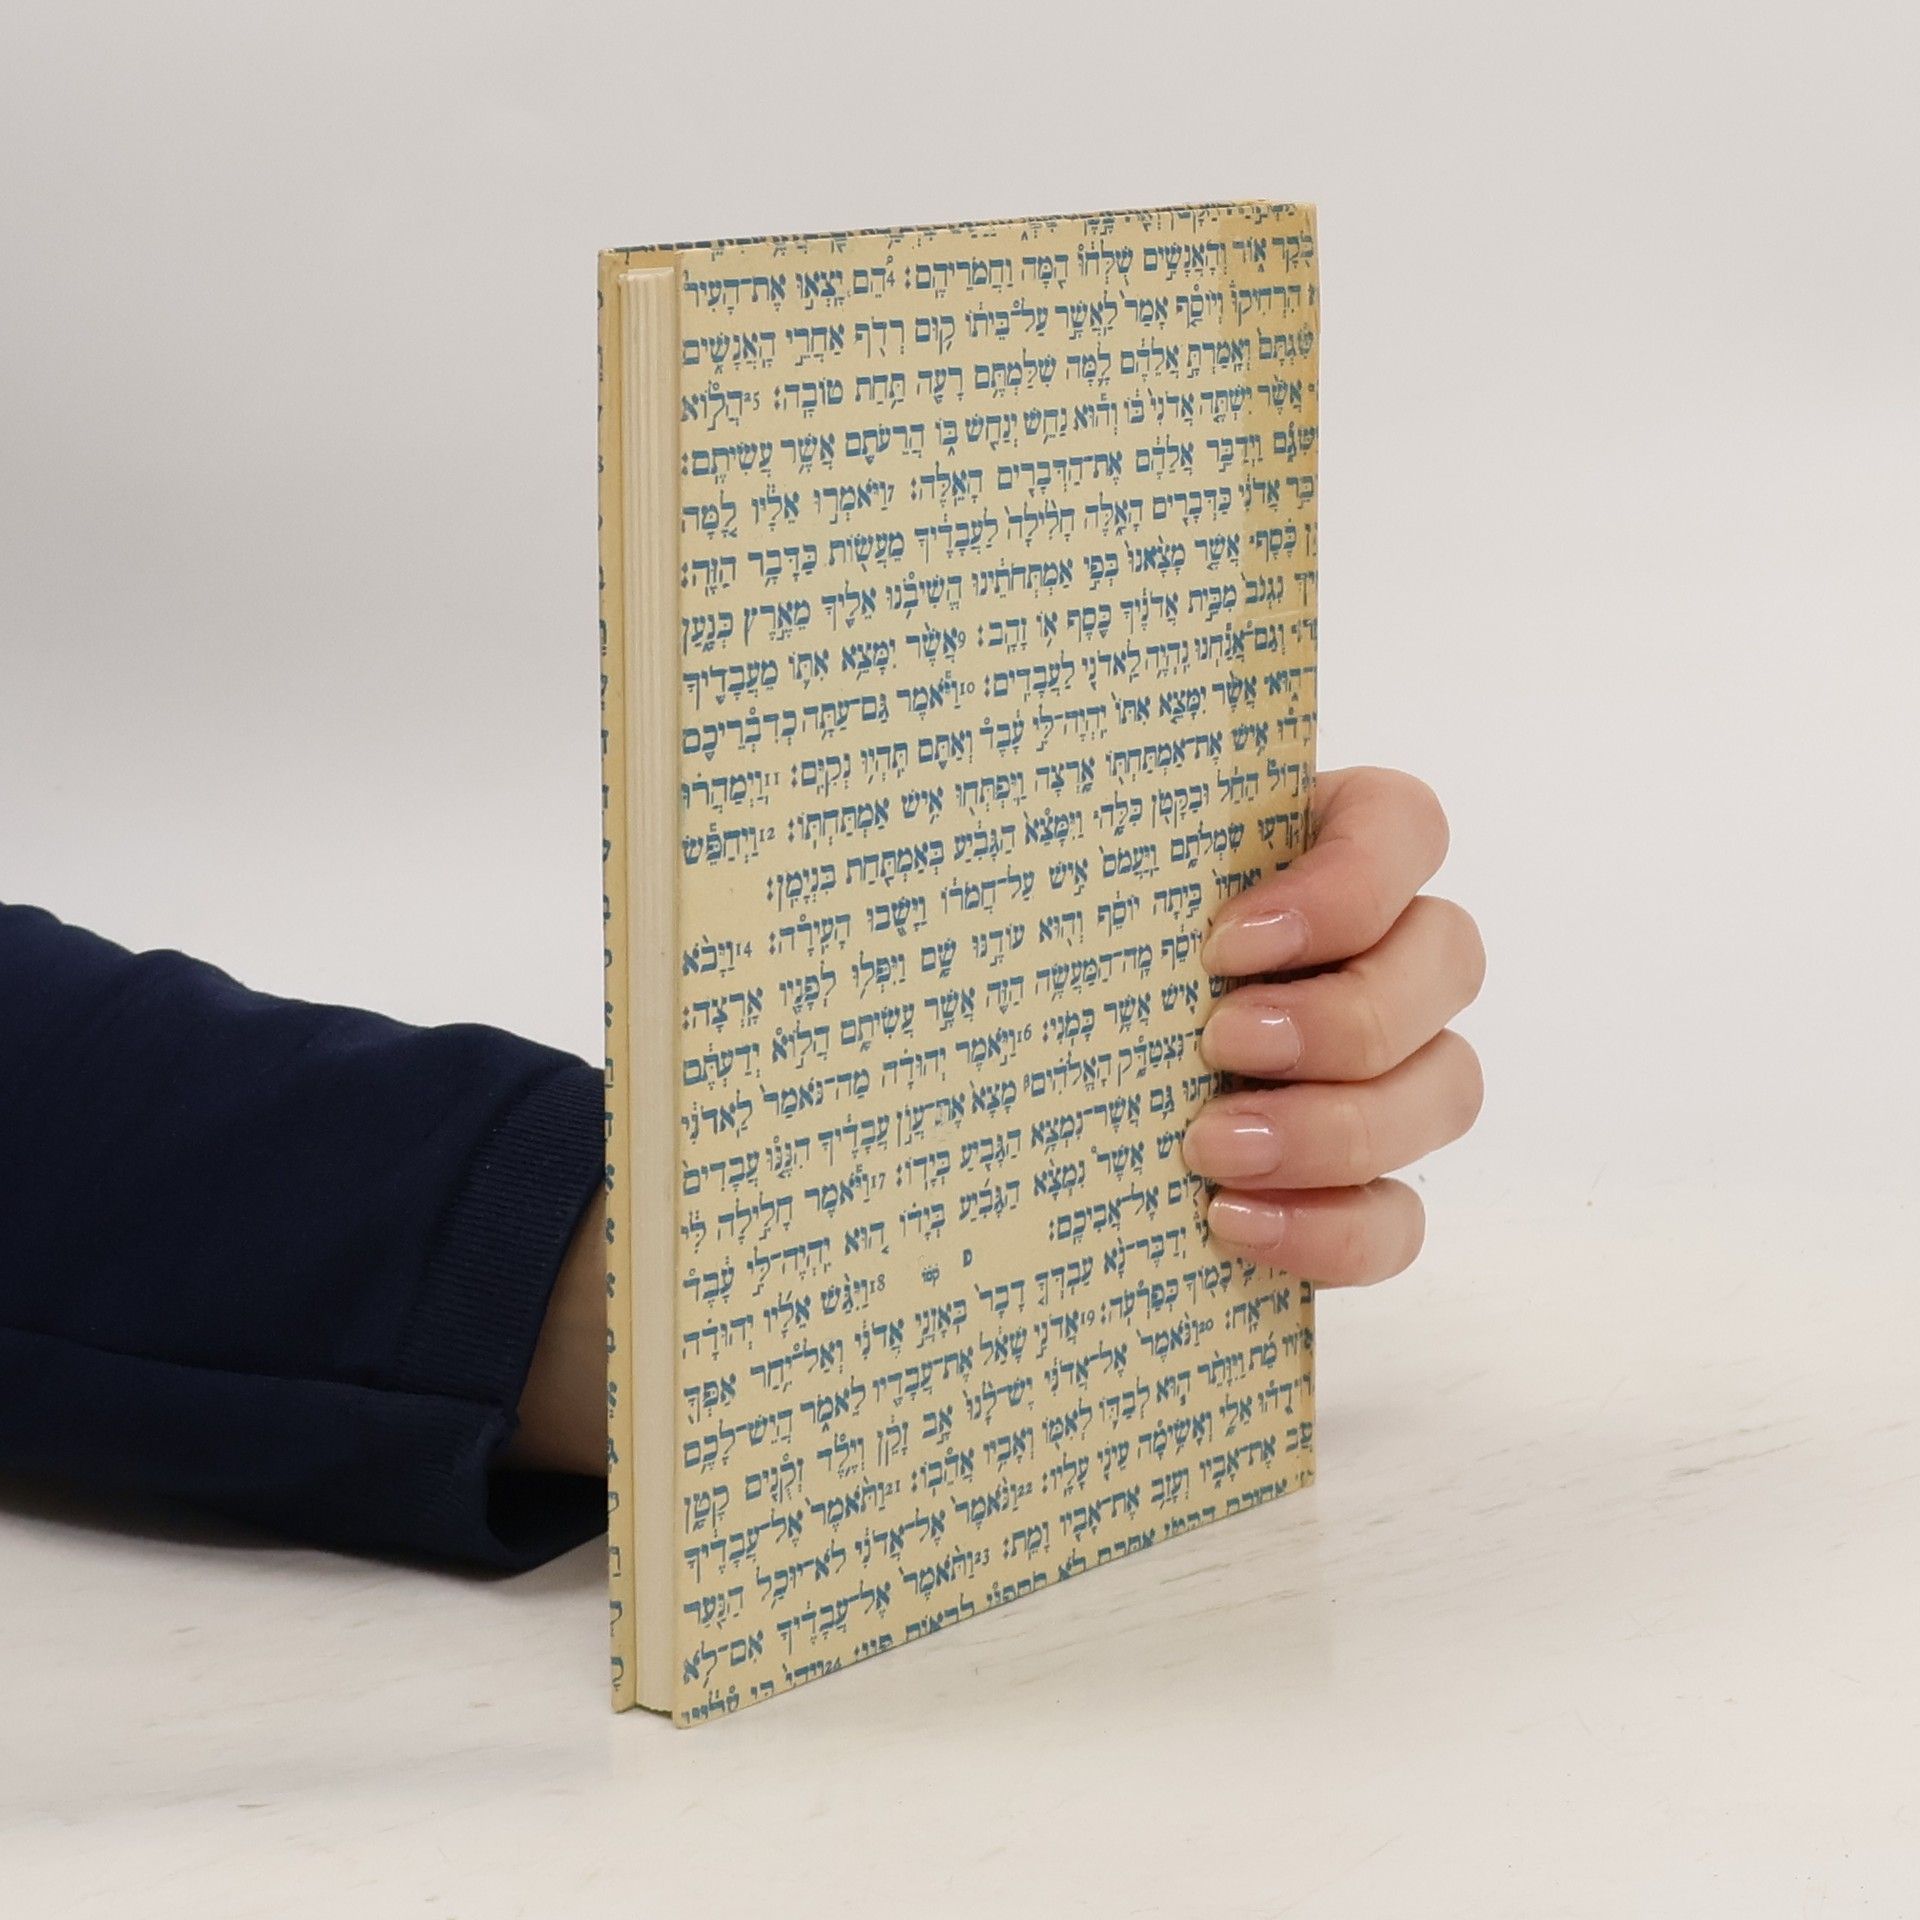 אוֹר וְהָאֲנָשִׁים שֻׁלְּחוּ הֵמָּה וַחֲמֹרֵיהֶם׃ 4הֵם יָצְאוּ אֶת־הָעִיר
הִרְחִיקוּ וְיוֹסֵף אָמַר לַאֲשֶׁר עַל־בֵּיתוֹ קוּם רְדֹף אַחֲרֵי הָאֲנָשִׁים
וְאָמַרְתָּ אֲלֵהֶם לָמָּה שִׁלַּמְתֶּם רָעָה תַּחַת טוֹבָה׃ 5הֲלוֹא
אֲשֶׁר יִשְׁתֶּה אֲדֹנִי בּוֹ וְהוּא נַחֵשׁ יְנַחֵשׁ בּוֹ הֲרֵעֹתֶם אֲשֶׁר עֲשִׂיתֶם׃
וַיְדַבֵּר אֲלֵהֶם אֶת־הַדְּבָרִים הָאֵלֶּה׃ 7וַיֹּאמְרוּ אֵלָיו לָמָּה
אֲדֹנִי כַּדְּבָרִים הָאֵלֶּה חָלִילָה לַעֲבָדֶיךָ מֵעֲשׂוֹת כַּדָּבָר הַזֶּה׃
כֶּסֶף אֲשֶׁר מָצָאנוּ בְּפִי אַמְתְּחֹתֵינוּ הֱשִׁיבֹנוּ אֵלֶיךָ מֵאֶרֶץ כְּנָעַן
נִגְנֹב מִבֵּית אֲדֹנֶיךָ כֶּסֶף אוֹ זָהָב׃ 9אֲשֶׁר יִמָּצֵא אִתּוֹ מֵעֲבָדֶיךָ
וְגַם־אֲנַחְנוּ נִהְיֶה לַאדֹנִי לַעֲבָדִים׃ 10וַיֹּאמֶר גַּם־עַתָּה כְדִבְרֵיכֶם
הוּא אֲשֶׁר יִמָּצֵא אִתּוֹ יִהְיֶה־לִּי עָבֶד וְאַתֶּם תִּהְיוּ נְקִיִּם׃ 11וַיְמַהֲרוּ
אִישׁ אֶת־אַמְתַּחְתּוֹ אָרְצָה וַיִּפְתְּחוּ אִישׁ אַמְתַּחְתּוֹ׃ 12וַיְחַפֵּשׂ
הֵחֵל וּבַקָּטֹן כִּלָּה וַיִּמָּצֵא הַגָּבִיעַ בְּאַמְתַּחַת בִּנְיָמִן׃
שִׂמְלֹתָם וַיַּעֲמֹס אִישׁ עַל־חֲמֹרוֹ וַיָּשֻׁבוּ הָעִירָה׃ 14וַיָּבֹא
וְאֶחָיו בֵּיתָה יוֹסֵף וְהוּא עוֹדֶנּוּ שָׁם וַיִּפְּלוּ לְפָנָיו אָרְצָה׃
יוֹסֵף מָה־הַמַּעֲשֶׂה הַזֶּה אֲשֶׁר עֲשִׂיתֶם הֲלוֹא יְדַעְתֶּם
אִישׁ אֲשֶׁר כָּמֹנִי׃ 16וַיֹּאמֶר יְהוּדָה מַה־נֹּאמַר לַאדֹנִי
־נִּצְטַדָּק הָאֱלֹהִים מָצָא אֶת־עֲוֹן עֲבָדֶיךָ הִנֶּנּוּ עֲבָדִים
גַּם אֲשֶׁר־נִמְצָא הַגָּבִיעַ בְּיָדוֹ׃ 17וַיֹּאמֶר חָלִילָה לִּי
אֲשֶׁר נִמְצָא הַגָּבִיעַ בְּיָדוֹ הוּא יִהְיֶה־לִּי עָבֶד
אֶל־אֲבִיכֶם׃ פ 18וַיִּגַּשׁ אֵלָיו יְהוּדָה
יְדַבֶּר־נָא עַבְדְּךָ דָבָר בְּאָזְנֵי אֲדֹנִי וְאַל־יִחַר אַפְּךָ
כָמוֹךָ כְּפַרְעֹה׃ 19אֲדֹנִי שָׁאַל אֶת־עֲבָדָיו לֵאמֹר הֲיֵשׁ־לָכֶם
אוֹ־אָח׃ 20וַנֹּאמֶר אֶל־אֲדֹנִי יֶשׁ־לָנוּ אָב זָקֵן וְיֶלֶד זְקֻנִים קָטָן
מֵת וַיִּוָּתֵר הוּא לְבַדּוֹ לְאִמּוֹ וְאָבִיו אֲהֵבוֹ׃ 21וַתֹּאמֶר אֶל־עֲבָדֶיךָ
אֵלָי וְאָשִׂימָה עֵינִי עָלָיו׃ 22וַנֹּאמֶר אֶל־אֲדֹנִי לֹא־יוּכַל הַנַּעַר
אֶת־אָבִיו וְעָזַב אֶת־אָבִיו וָמֵת׃ 23וַתֹּאמֶר אֶל־עֲבָדֶיךָ אִם־לֹא